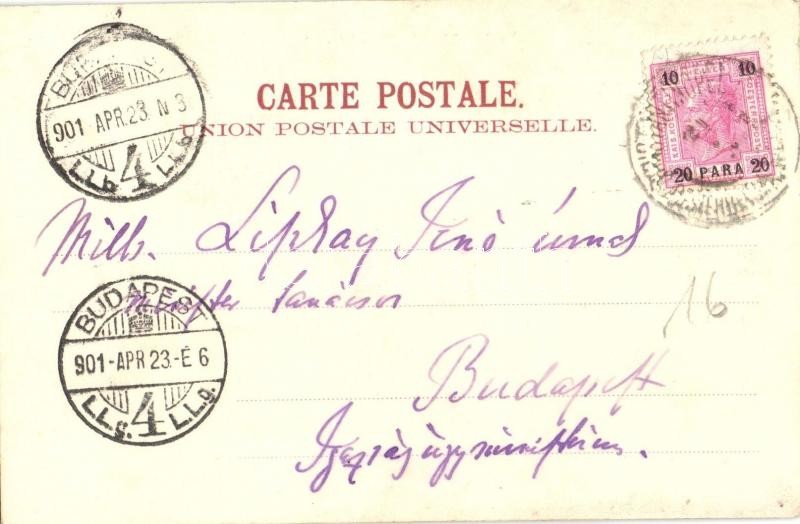 CARTE POSTALE.
UNION POSTALE UNIVERSELLE.
10 10
20 PARA 20
BUDAPEST
901-APR.23. N 3
4
Mlb. Lipthay Jenő úrnak
miniszter tanácsos
BUDAPEST
901-APR 23.-É 6
4
16
Budapest
Igazságügyminisztérium.